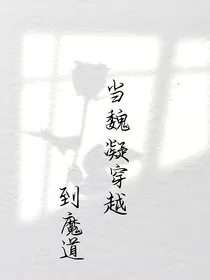 当魏凝穿越
到魔道